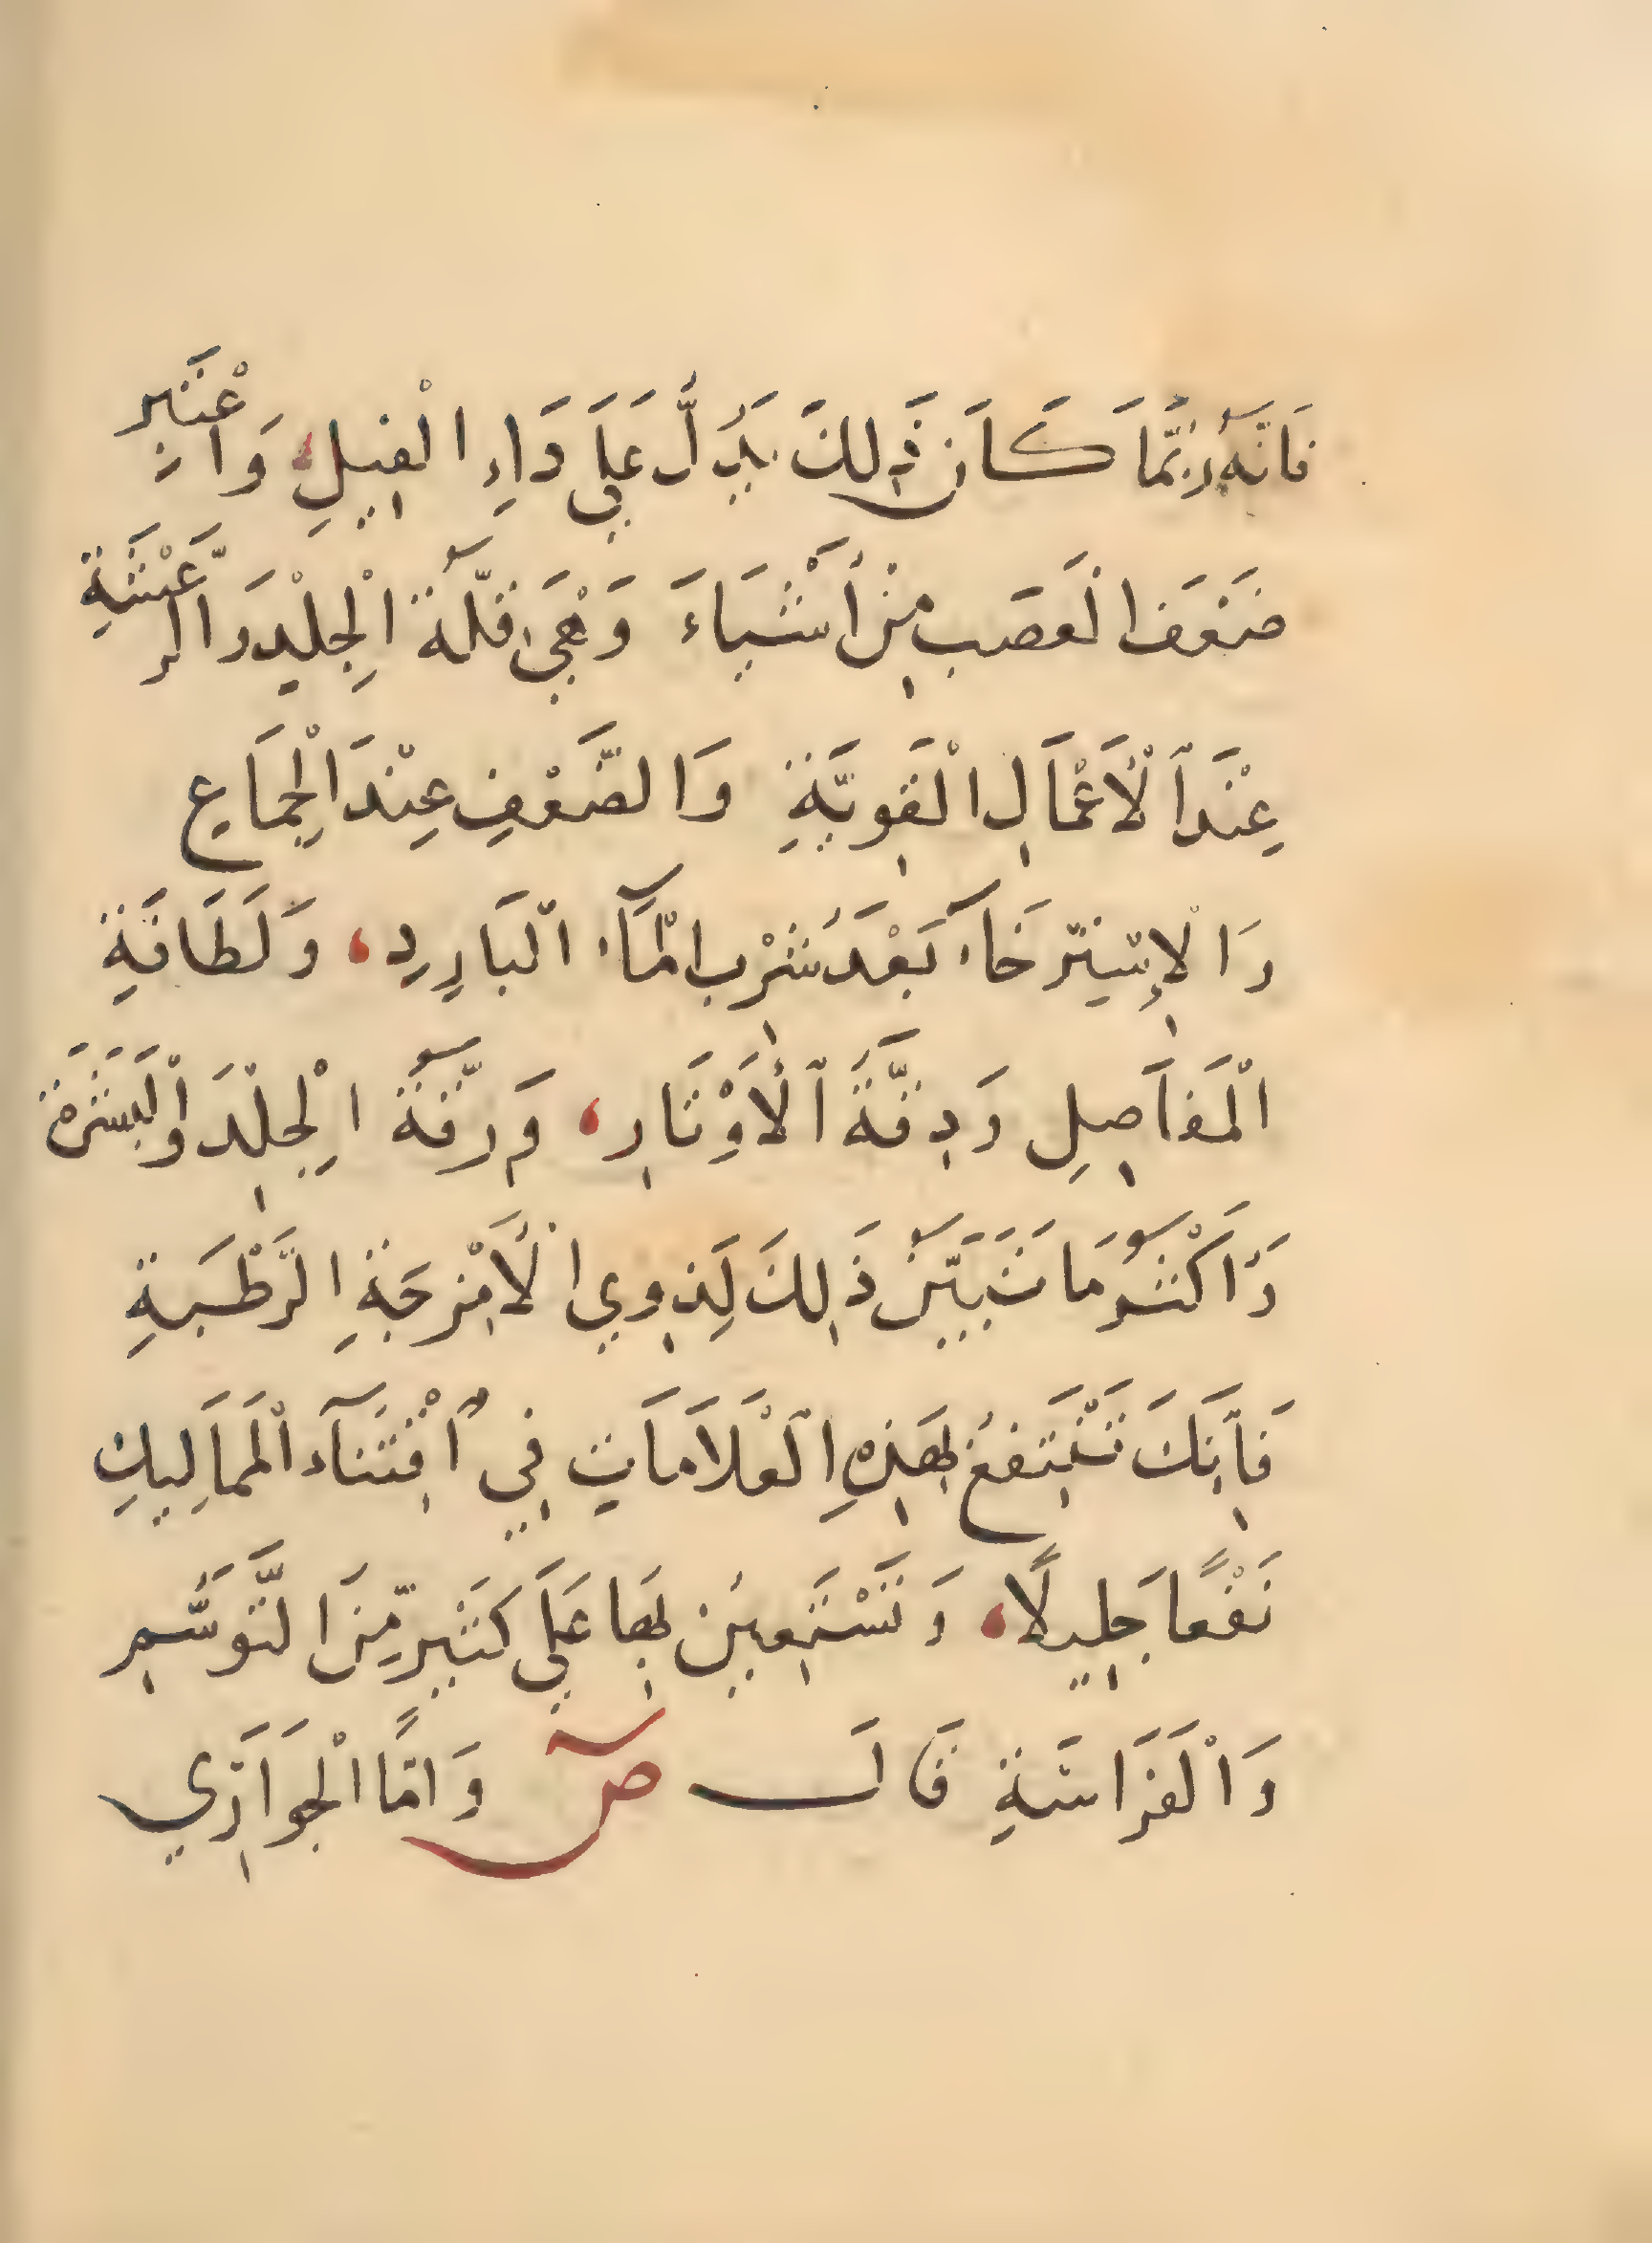 فَاِنَّهُ رُبَّمَا كَانَ ذٰلِكَ يَدُلَّ عَلَي دَاءِ الْفِيلِ، وَاعْتَبِرْ
ضَعْفَ الْعَصَبِ مِنْ أَشْيَاءَ وَهْيَ قِلَّة الْجِلْدِ وَالرَّعْشَةِ
عِنْدَ الْأَعْمَالِ الْقَوِيَّةِ وَالضَّعْفِ عِنْدَ الْجِمَاعِ
وَالْإِسْتِرْخَآءِ بَعْدَ شُرْبِ الْمَآءِ الْبَارِدِ، وَلَطَافَةِ
الْمَفَاصِلِ وَدِقَّةَ الْأَوْتَارِ، وَرِقَّة الْجِلْدِ وَالْبَشَرَة
وَأَكْثَرُ مَا تَبَيَّنَ ذَالِكَ لَذِوِي الْأَمْزِجَةِ الرَّطْبَةِ
فَاِنَّكَ تَنْتَفِعُ بِهَذِهِ الْعَلَامَاتِ فِي اقْتِنَآء الْمَمَالِيكِ
نَفْعًا جَلِيلًا، وَتَسْتَعِينُ بِهَا عَلَي كَثِيرٍ مِّنَ التَّوَسُّمِ
وَالْفَرَاسَةِ قَالَ ص وَامَّا الْجَوَارِي